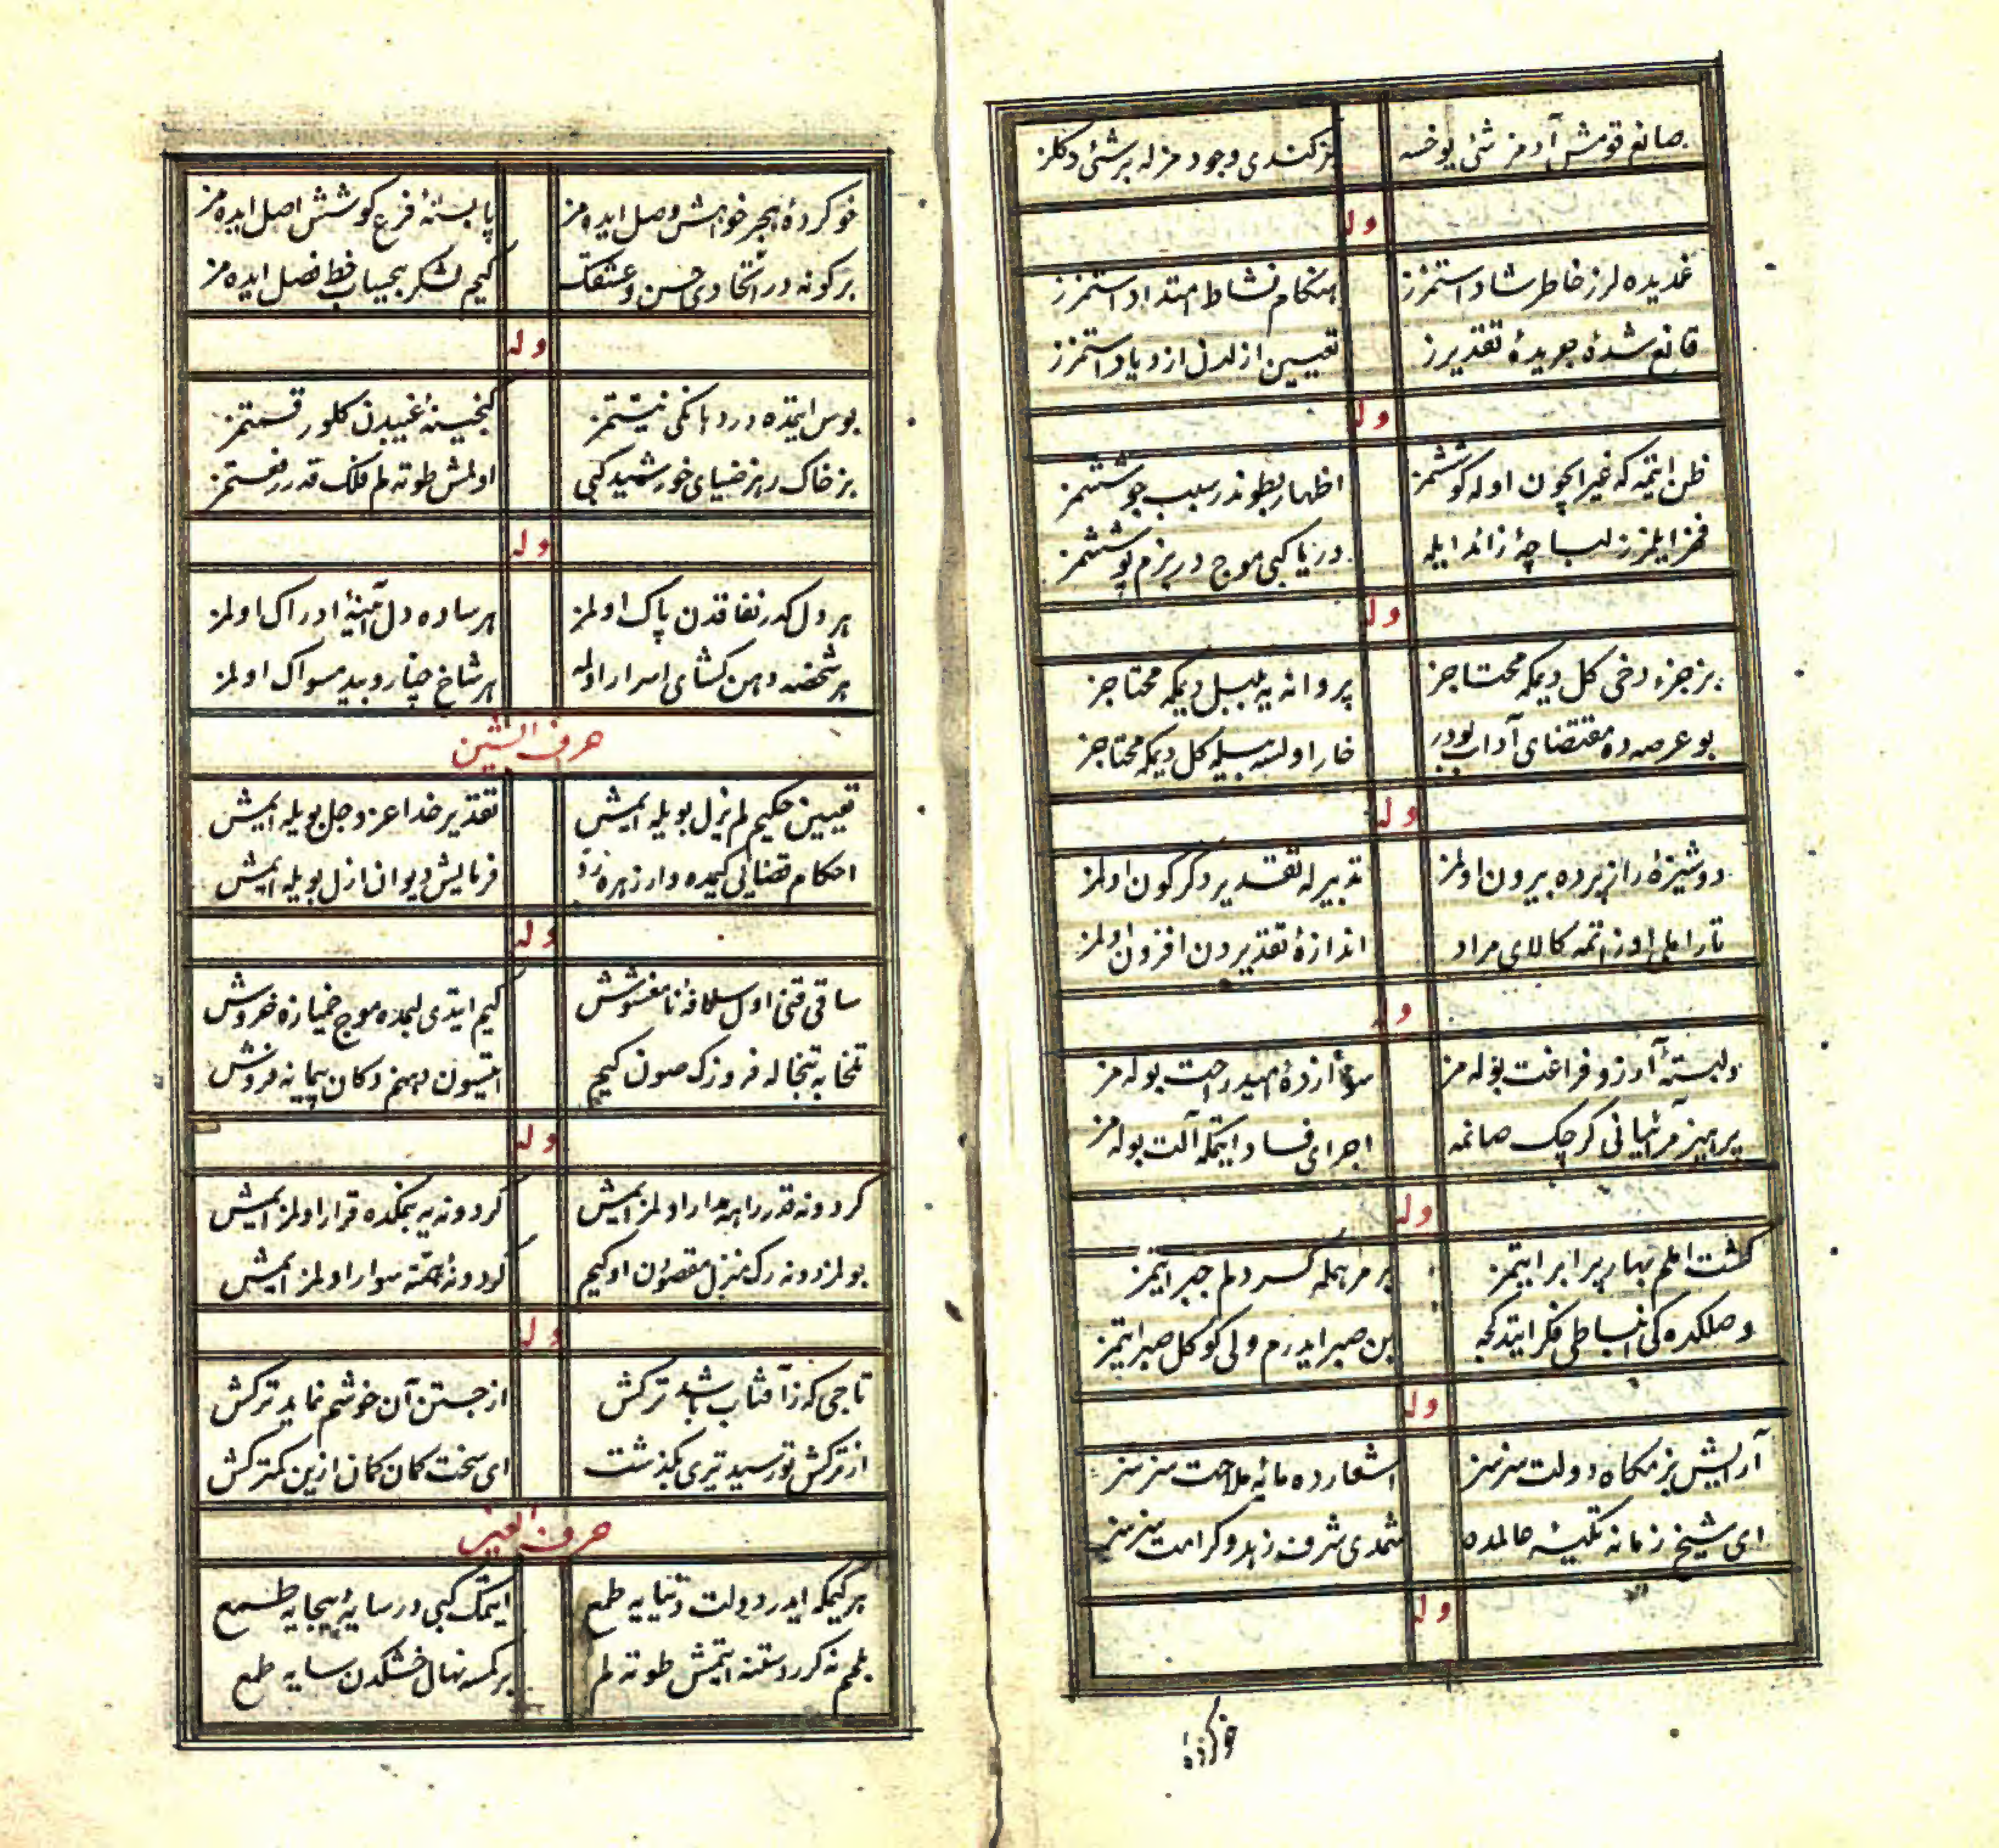 صانع قومش آدمز شئ یوخسه بز کندی وجودمزله بر شئ دکلز
وله
غمدیده لرز خاطر شاد استمزز هنکام نشاط امتداد استمزز
قانع شدۀ جریدۀ تقدیرز تعیین ازلدن ازدیاد استمزز
وله
ظن ایتمه که غیر ایچون اوله کوششمز اظهار بطوندر سبب جوششمز
فخر ایلمزز لباچۀ زائد ایله دریا کبی موج در بزم پوششمز
وله
بز جزء دخی کل دیمکه محتاجز پروانه یه بلبل دیمکه محتاجز
بو عرصه ده مقتضای آداب بودر خار اولسه بیله کل دیمکه محتاجز
وله
دوشیزۀ راز پرده بیرون اولمز تدبیرله تقدیر دکرکون اولمز
کالای مراد اندازۀ تقدیردن افزون اولمز
وله
دلبستۀ آرزو فراغت بوله مز امید راحت بوله مز
پرهیز مرائیانی کرچک صانمه اجرای فساد ایتمکه آلت بوله مز
وله
کشت املم بهار پر ابر ایتمز بر مرهمله کسر دلم جبر ایتمز
وصلکده کی انبساطی فکر ایتدکجه بن صبر ایدرم ولی کوکل صبر ایتمز
وله
آرایش بزمکاه دولت سزسز اشعارده مایۀ ملاحت سزسز
ای شیخ زمانه تکیۀ عالمده شمدی شرف زهد و کرامت سزسز
وله
خوکردۀ
خوکردۀ هجر خواهش وصل ایده مز پابستۀ فرع کوشش اصل ایده مز
بر کونه در اتحادی حسن و عشقک کیم لشکر بیحساب خط فصل ایده مز
وله
بوس ایتده در دهانکی نیتمز کنجینۀ غیبدن کلور قسمتمز
بز خاک رهز ضیای خورشید کبی اولمش طوته لم فلک قدر رفعتمز
وله
هر دل کدر نفاقدن پاک اولمز هر ساده دل آیینۀ ادراک اولمز
هر شخصه دهن کشای اسرار اولمه هر شاخ چنار و بید مسواک اولمز
حرف الشین
تعیین حکیم لم یزل بویله ایمش تقدیر خدا عز و جل بویله ایمش
احکام قضایی کیمده وار زهرۀ رد فرمایش دیوان ازل بویله ایمش
وله
ساقی قنی اول سلافۀ نامغشوش کیم ایتدی لبمده موج خمیازه خروش
تلخابه تبخاله فروزک صون کیم ایتسون دهنم دکان پیمانه فروش
وله
کردونه قدر راهه مدار اولمز ایمش کردونه یه بمکده قرار اولمز ایمش
بولمزدونه رک منزل مقصودن او کیم کردونۀ همته سوار اولمز ایمش
وله
تاجی که ز آفتاب باشد ترکش از جستن آن خوشم نماید ترکش
از ترکش تو رسید تیری بکذشت ای سخت کمان کمان ازین کمتر کش
حرف العین
هر کیمکه ایدر دولت دنیایه طمع ایتمک کبی در سایۀ بیجایه طمع
بلمم نه کرر دستنه ایتمش طوته لم بر کمسه نهال خشکدن سایه طمع